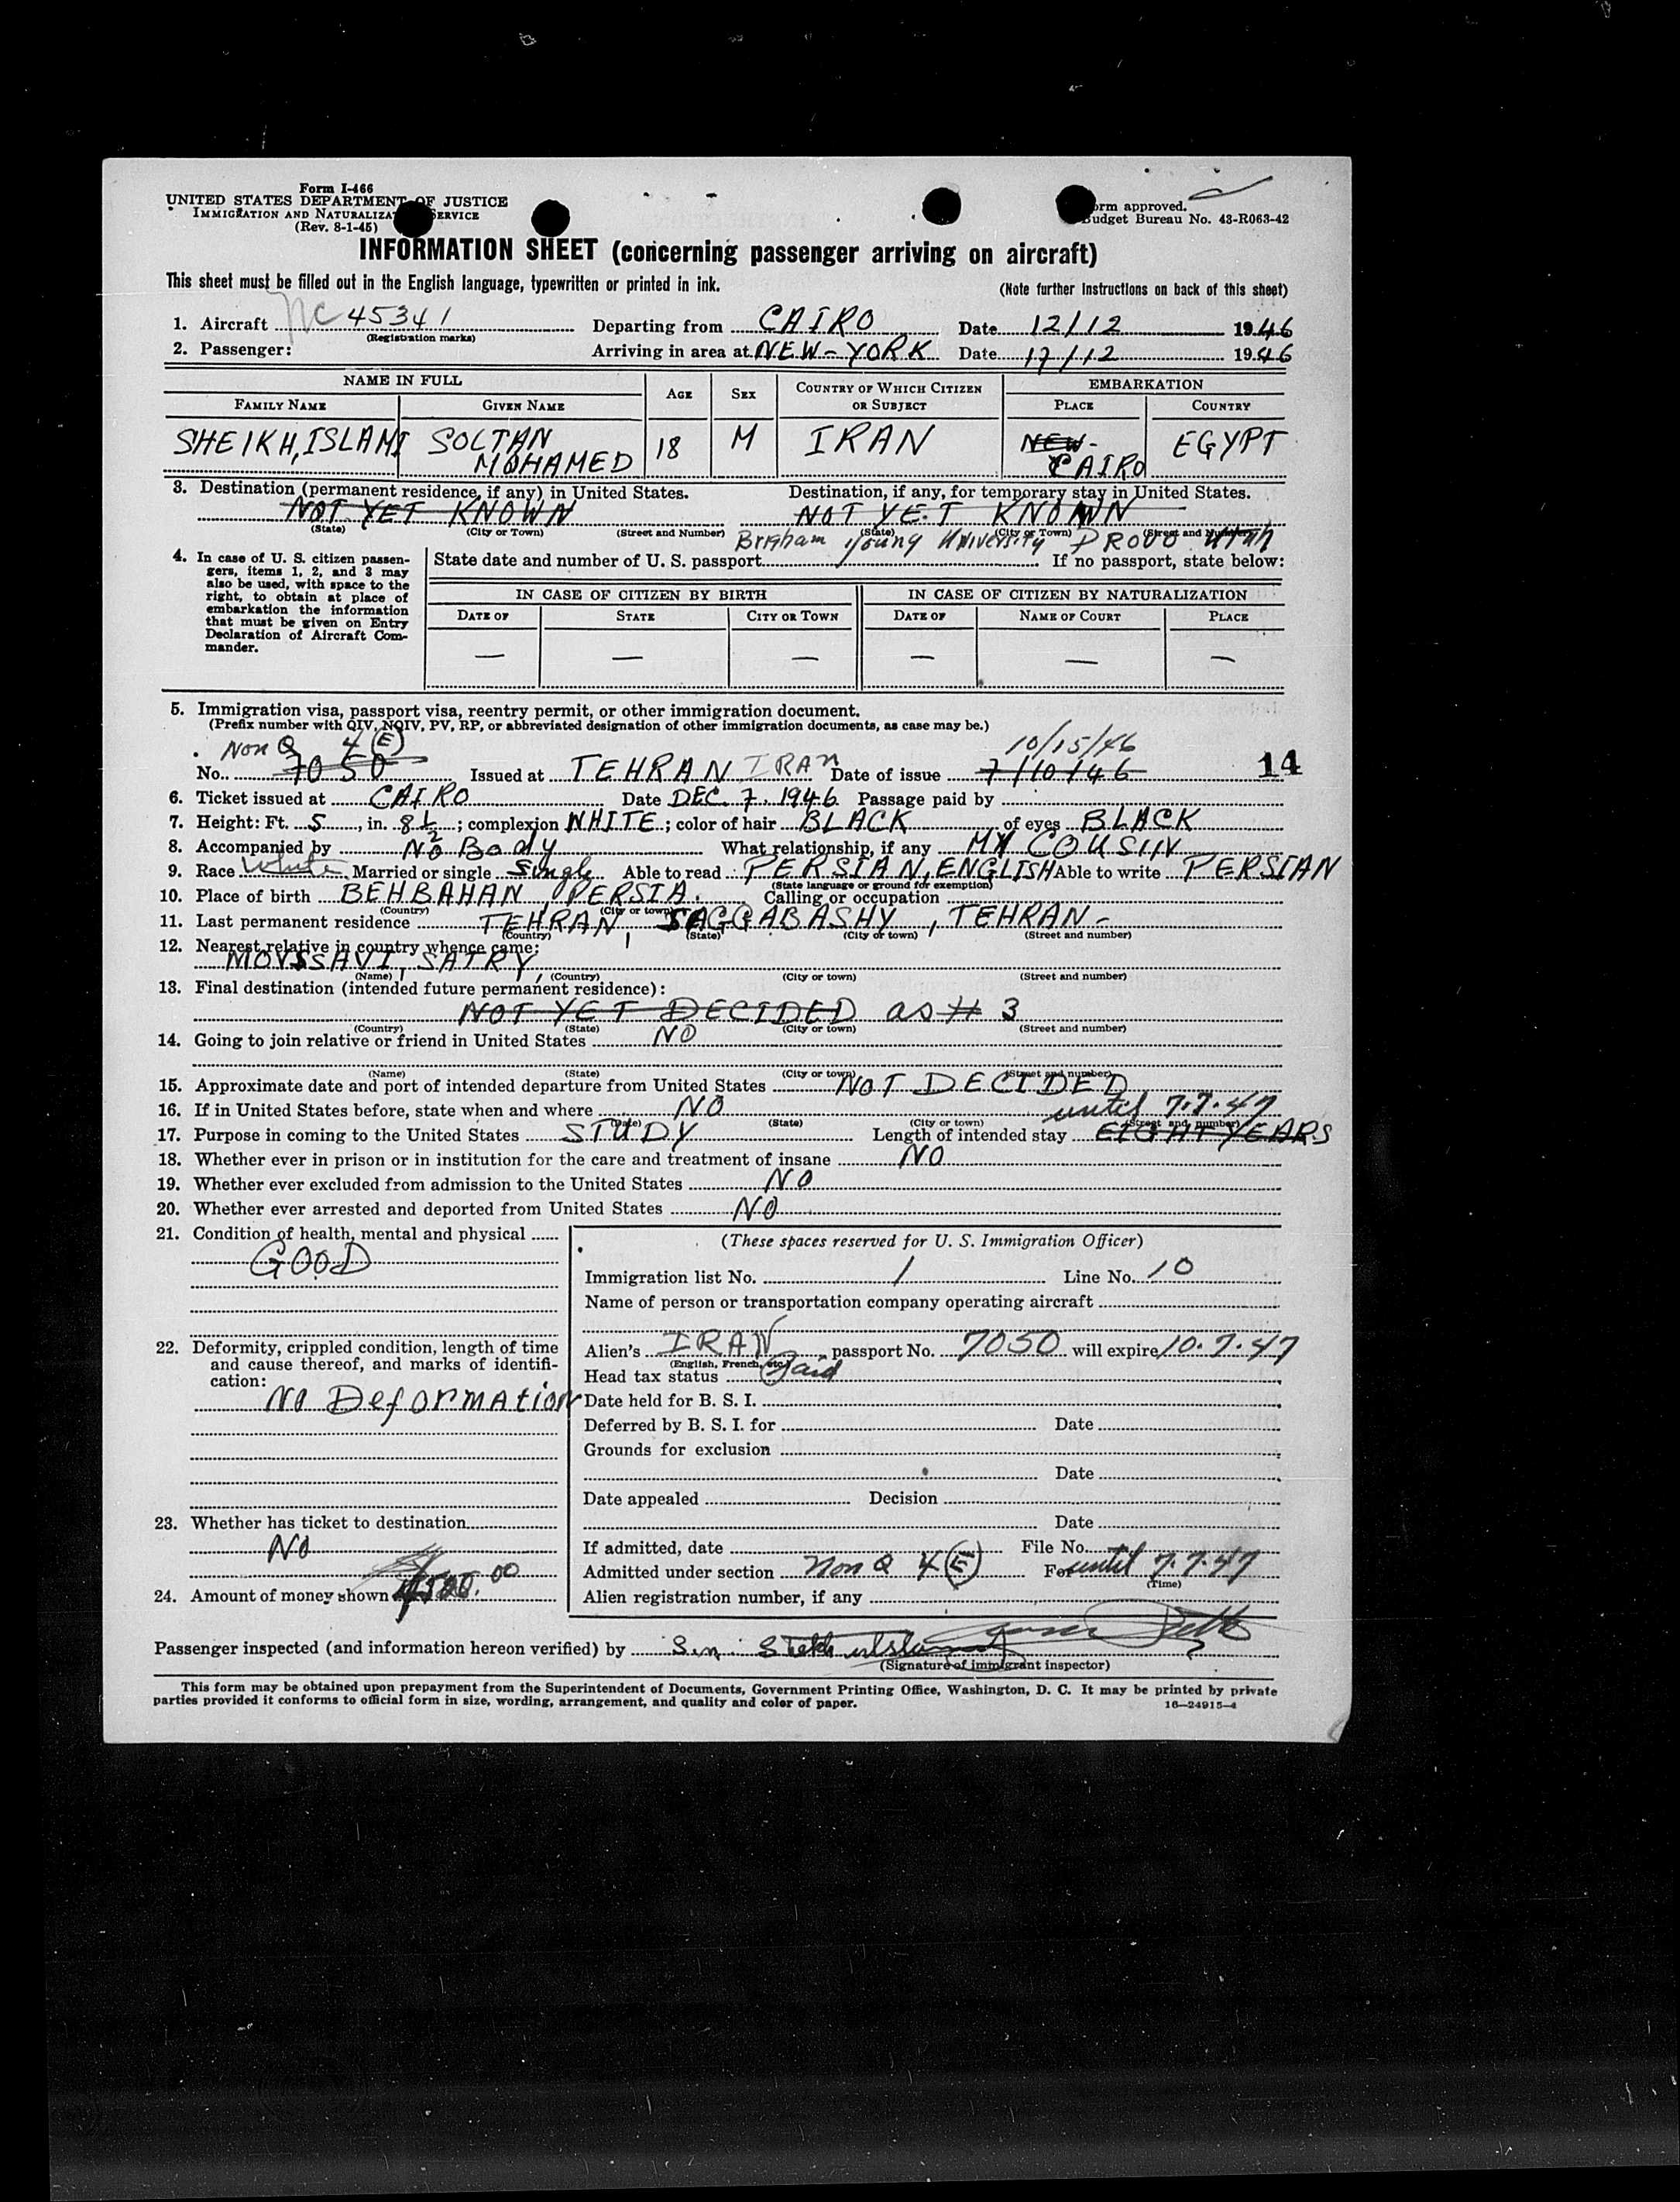 Form I-466
UNITED STATES DEPARTMENT OF JUSTICE
IMMIGRATION AND NATURALIZATION SERVICE
(Rev. 8-1-45)
Form approved.
Budget Bureau No. 43-R063-42
INFORMATION SHEET (concerning passenger arriving on aircraft)
This sheet must be filled out in the English language, typewritten or printed in ink.
(Note further instructions on back of this sheet)
1. Aircraft NC 45341 Departing from CAIRO Date 12/12 1946
(Registration marks)
2. Passenger: Arriving in area at NEW-YORK Date 17/12 1946
NAME IN FULL AGE SEX COUNTRY OF WHICH CITIZEN OR SUBJECT EMBARKATION
FAMILY NAME GIVEN NAME PLACE COUNTRY
SHEIKH, ISLAMI SOLTAN MOHAMED 18 M IRAN NEW- CAIRO EGYPT
3. Destination (permanent residence, if any) in United States. Destination, if any, for temporary stay in United States.
NOT YET KNOWN NOT YET KNOWN
(State) (City or Town) (Street and Number) (State) (City or Town) (Street and Number)
Brigham Young University PROVO Utah
4. In case of U. S. citizen passengers, items 1, 2, and 3 may also be used, with space to the right, to obtain at place of embarkation the information that must be given on Entry Declaration of Aircraft Commander.
State date and number of U. S. passport If no passport, state below:
IN CASE OF CITIZEN BY BIRTH IN CASE OF CITIZEN BY NATURALIZATION
DATE OF STATE CITY OR TOWN DATE OF NAME OF COURT PLACE
— — — — — —
5. Immigration visa, passport visa, reentry permit, or other immigration document.
(Prefix number with QIV, NQIV, PV, RP, or abbreviated designation of other immigration documents, as case may be.)
Non Q 4 (E) 10/15/46
No. 7050 Issued at TEHRAN IRAN Date of issue 7/10/46 14
6. Ticket issued at CAIRO Date DEC. 7. 1946 Passage paid by
7. Height: Ft. 5, in. 8 1/2; complexion WHITE; color of hair BLACK of eyes BLACK
8. Accompanied by No Body What relationship, if any MY COUSIN
9. Race White Married or single Single Able to read PERSIAN, ENGLISH Able to write PERSIAN
(State language or ground for exemption)
10. Place of birth BEHBAHAN, PERSIA. Calling or occupation
(Country) (City or town)
11. Last permanent residence TEHRAN, SAGGABASHY, TEHRAN-
(Country) (State) (City or town) (Street and number)
12. Nearest relative in country whence came:
MOVSSAVI, SATRY,
(Name) (Country) (City or town) (Street and number)
13. Final destination (intended future permanent residence):
NOT YET DECIDED as # 3
(Country) (State) (City or town) (Street and number)
14. Going to join relative or friend in United States NO
(Name) (State) (City or town) (Street and number)
15. Approximate date and port of intended departure from United States NOT DECIDED
16. If in United States before, state when and where NO
(Date) (State) (City or town) (Street and number)
until 7.7.47
17. Purpose in coming to the United States STUDY Length of intended stay EIGHT YEARS
18. Whether ever in prison or in institution for the care and treatment of insane NO
19. Whether ever excluded from admission to the United States NO
20. Whether ever arrested and deported from United States NO
21. Condition of health, mental and physical
GOOD
22. Deformity, crippled condition, length of time and cause thereof, and marks of identification:
No Deformation
23. Whether has ticket to destination
No
24. Amount of money shown
(These spaces reserved for U. S. Immigration Officer)
Immigration list No. 1 Line No. 10
Name of person or transportation company operating aircraft
Alien's IRAN passport No. 7050 will expire 10.7.47
(English, French, etc.)
Head tax status Paid
Date held for B. S. I.
Deferred by B. S. I. for Date
Grounds for exclusion
Date
Date appealed Decision
Date
If admitted, date File No.
Admitted under section Non Q 4 (E) For until 7.7.47
(Time)
Alien registration number, if any
Passenger inspected (and information hereon verified) by
(Signature of immigrant inspector)
This form may be obtained upon prepayment from the Superintendent of Documents, Government Printing Office, Washington, D. C. It may be printed by private
parties provided it conforms to official form in size, wording, arrangement, and quality and color of paper.
16—24915-4